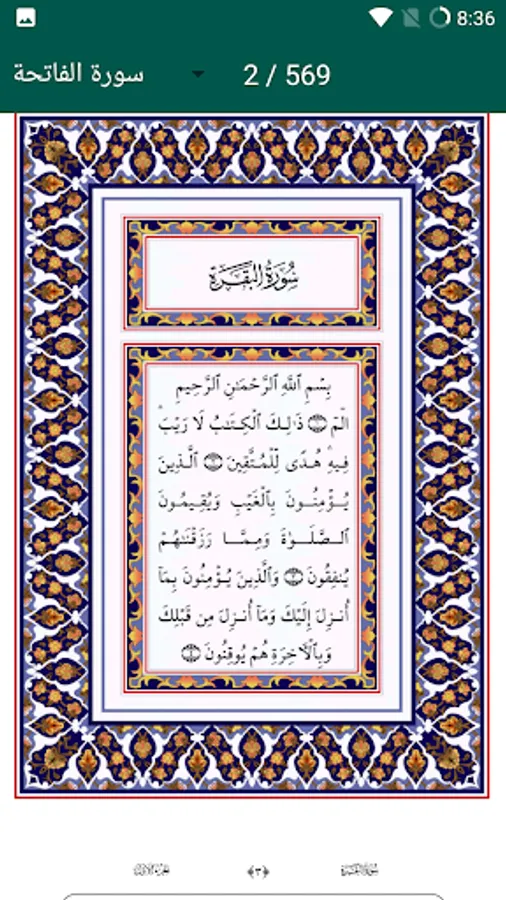 8:36
سورة الفاتحة
2 / 569
سُورَةُ البَقَرَةِ
بِسْمِ ٱللَّهِ ٱلرَّحْمَٰنِ ٱلرَّحِيمِ
الٓمٓ ۝١ ذَٰلِكَ ٱلْكِتَٰبُ لَا رَيْبَ ۛ
فِيهِ ۛ هُدًى لِّلْمُتَّقِينَ ۝٢ ٱلَّذِينَ
يُؤْمِنُونَ بِٱلْغَيْبِ وَيُقِيمُونَ
ٱلصَّلَوٰةَ وَمِمَّا رَزَقْنَٰهُمْ
يُنفِقُونَ ۝٣ وَٱلَّذِينَ يُؤْمِنُونَ بِمَآ
أُنزِلَ إِلَيْكَ وَمَآ أُنزِلَ مِن قَبْلِكَ
وَبِٱلْأٓخِرَةِ هُمْ يُوقِنُونَ ۝٤
سُورَةُ البَقَرَةِ
﴿٣﴾
الجزء الأول